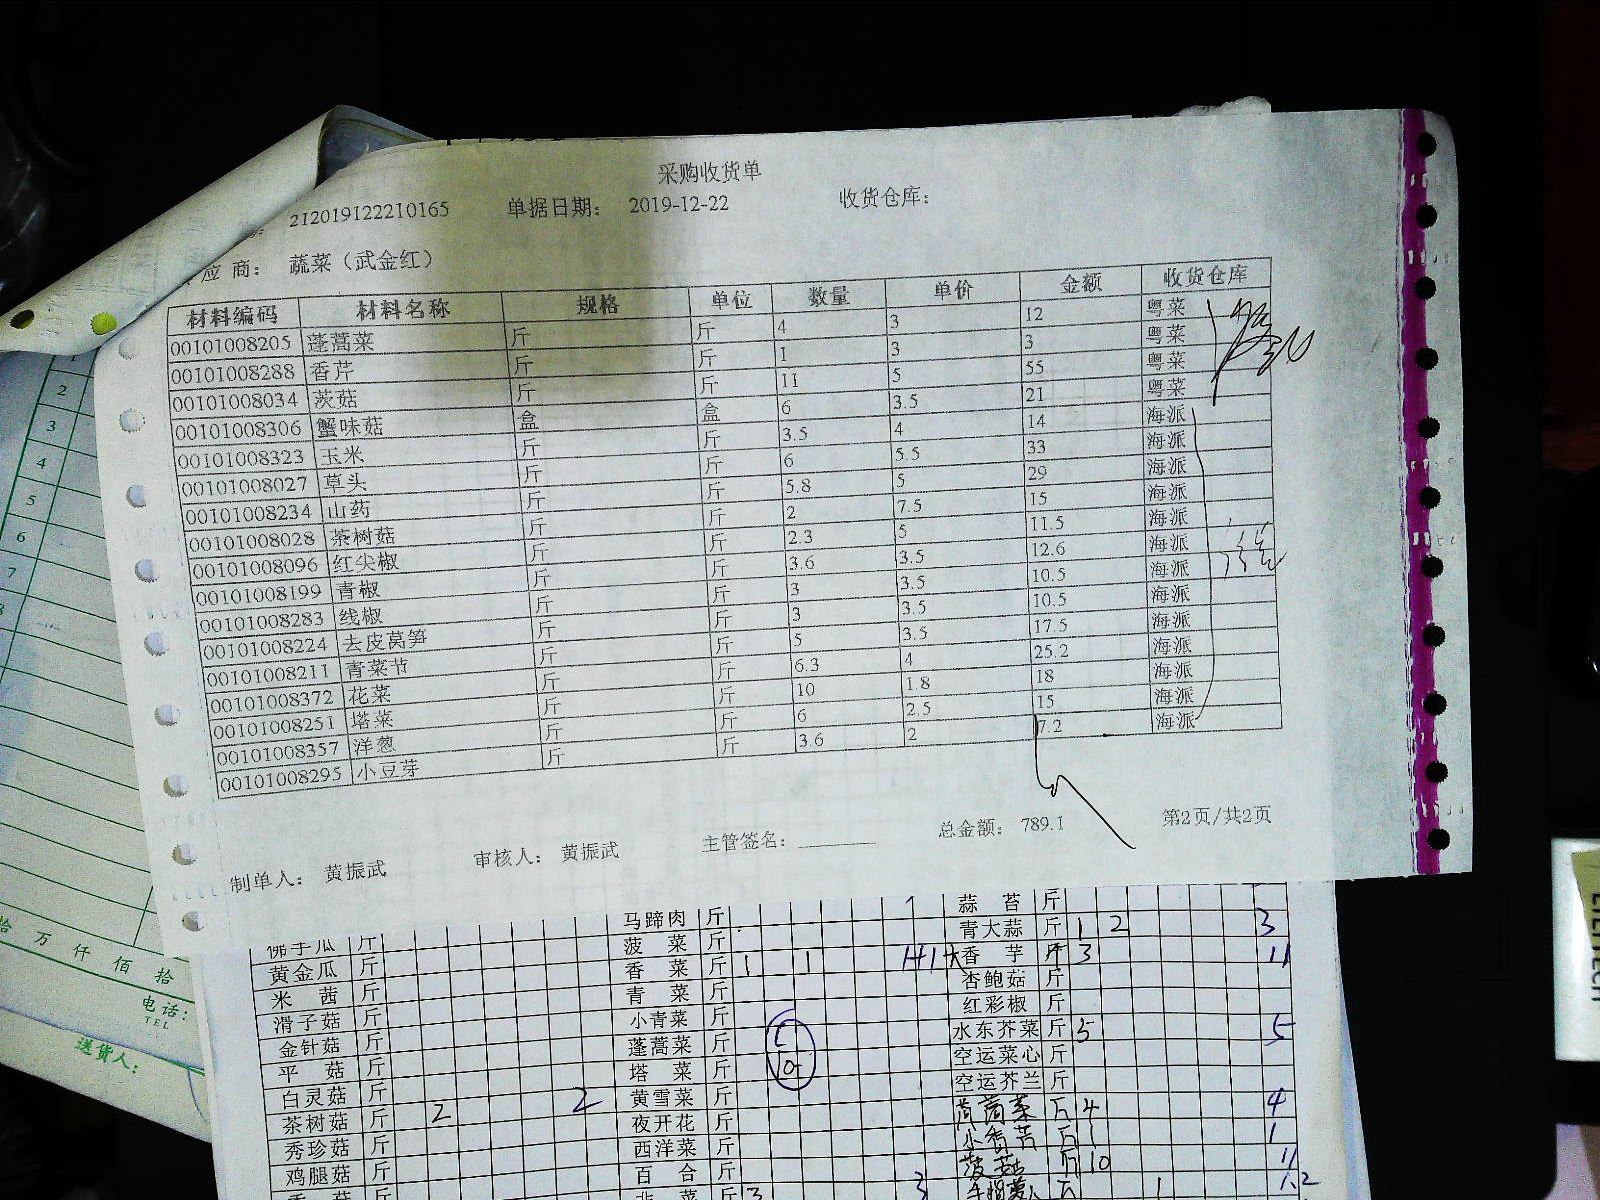 采购收货单
212019122210165 单据日期: 2019-12-22 收货仓库:
应 商: 蔬菜（武金红）
材料编码 材料名称 规格 单位 数量 单价 金额 收货仓库
00101008205 蓬蒿菜 斤 斤 4 3 12 粤菜
00101008288 香芹 斤 斤 1 3 3 粤菜
00101008034 茨菇 斤 斤 11 5 55 粤菜
00101008306 蟹味菇 盒 盒 6 3.5 21 粤菜
00101008323 玉米 斤 斤 3.5 4 14 海派
00101008027 草头 斤 斤 6 5.5 33 海派
00101008234 山药 斤 斤 5.8 5 29 海派
00101008028 茶树菇 斤 斤 2 7.5 15 海派
00101008096 红尖椒 斤 斤 2.3 5 11.5 海派
00101008199 青椒 斤 斤 3.6 3.5 12.6 海派
00101008283 线椒 斤 斤 3 3.5 10.5 海派
00101008224 去皮莴笋 斤 斤 3 3.5 10.5 海派
00101008211 青菜节 斤 斤 5 3.5 17.5 海派
00101008372 花菜 斤 斤 6.3 4 25.2 海派
00101008251 塔菜 斤 斤 10 1.8 18 海派
00101008357 洋葱 斤 斤 6 2.5 15 海派
00101008295 小豆芽 斤 斤 3.6 2 7.2 海派
制单人: 黄振武 审核人: 黄振武 主管签名: 总金额: 789.1 第2页/共2页
马蹄肉 斤 蒜苔 斤
佛手瓜 斤 菠菜 斤 青大蒜 斤 1 2 3
黄金瓜 斤 香菜 斤 1 1 香芋 斤 3 11
米茜 斤 青菜 斤 杏鲍菇 斤
滑子菇 斤 小青菜 斤 红彩椒 斤
金针菇 斤 蓬蒿菜 斤 水东芥菜 斤 5 5
平菇 斤 塔菜 斤 10 空运菜心 斤
白灵菇 斤 黄雪菜 斤 空运芥兰 斤
茶树菇 斤 2 2 夜开花 斤 茼蒿菜 斤 4 4
秀珍菇 斤 西洋菜 斤 小香芹 斤 1 1
鸡腿菇 斤 百合 斤 斤 10 11
2
3
4
5
6
7
万 仟 佰 拾
电话:
TEL
送货人: